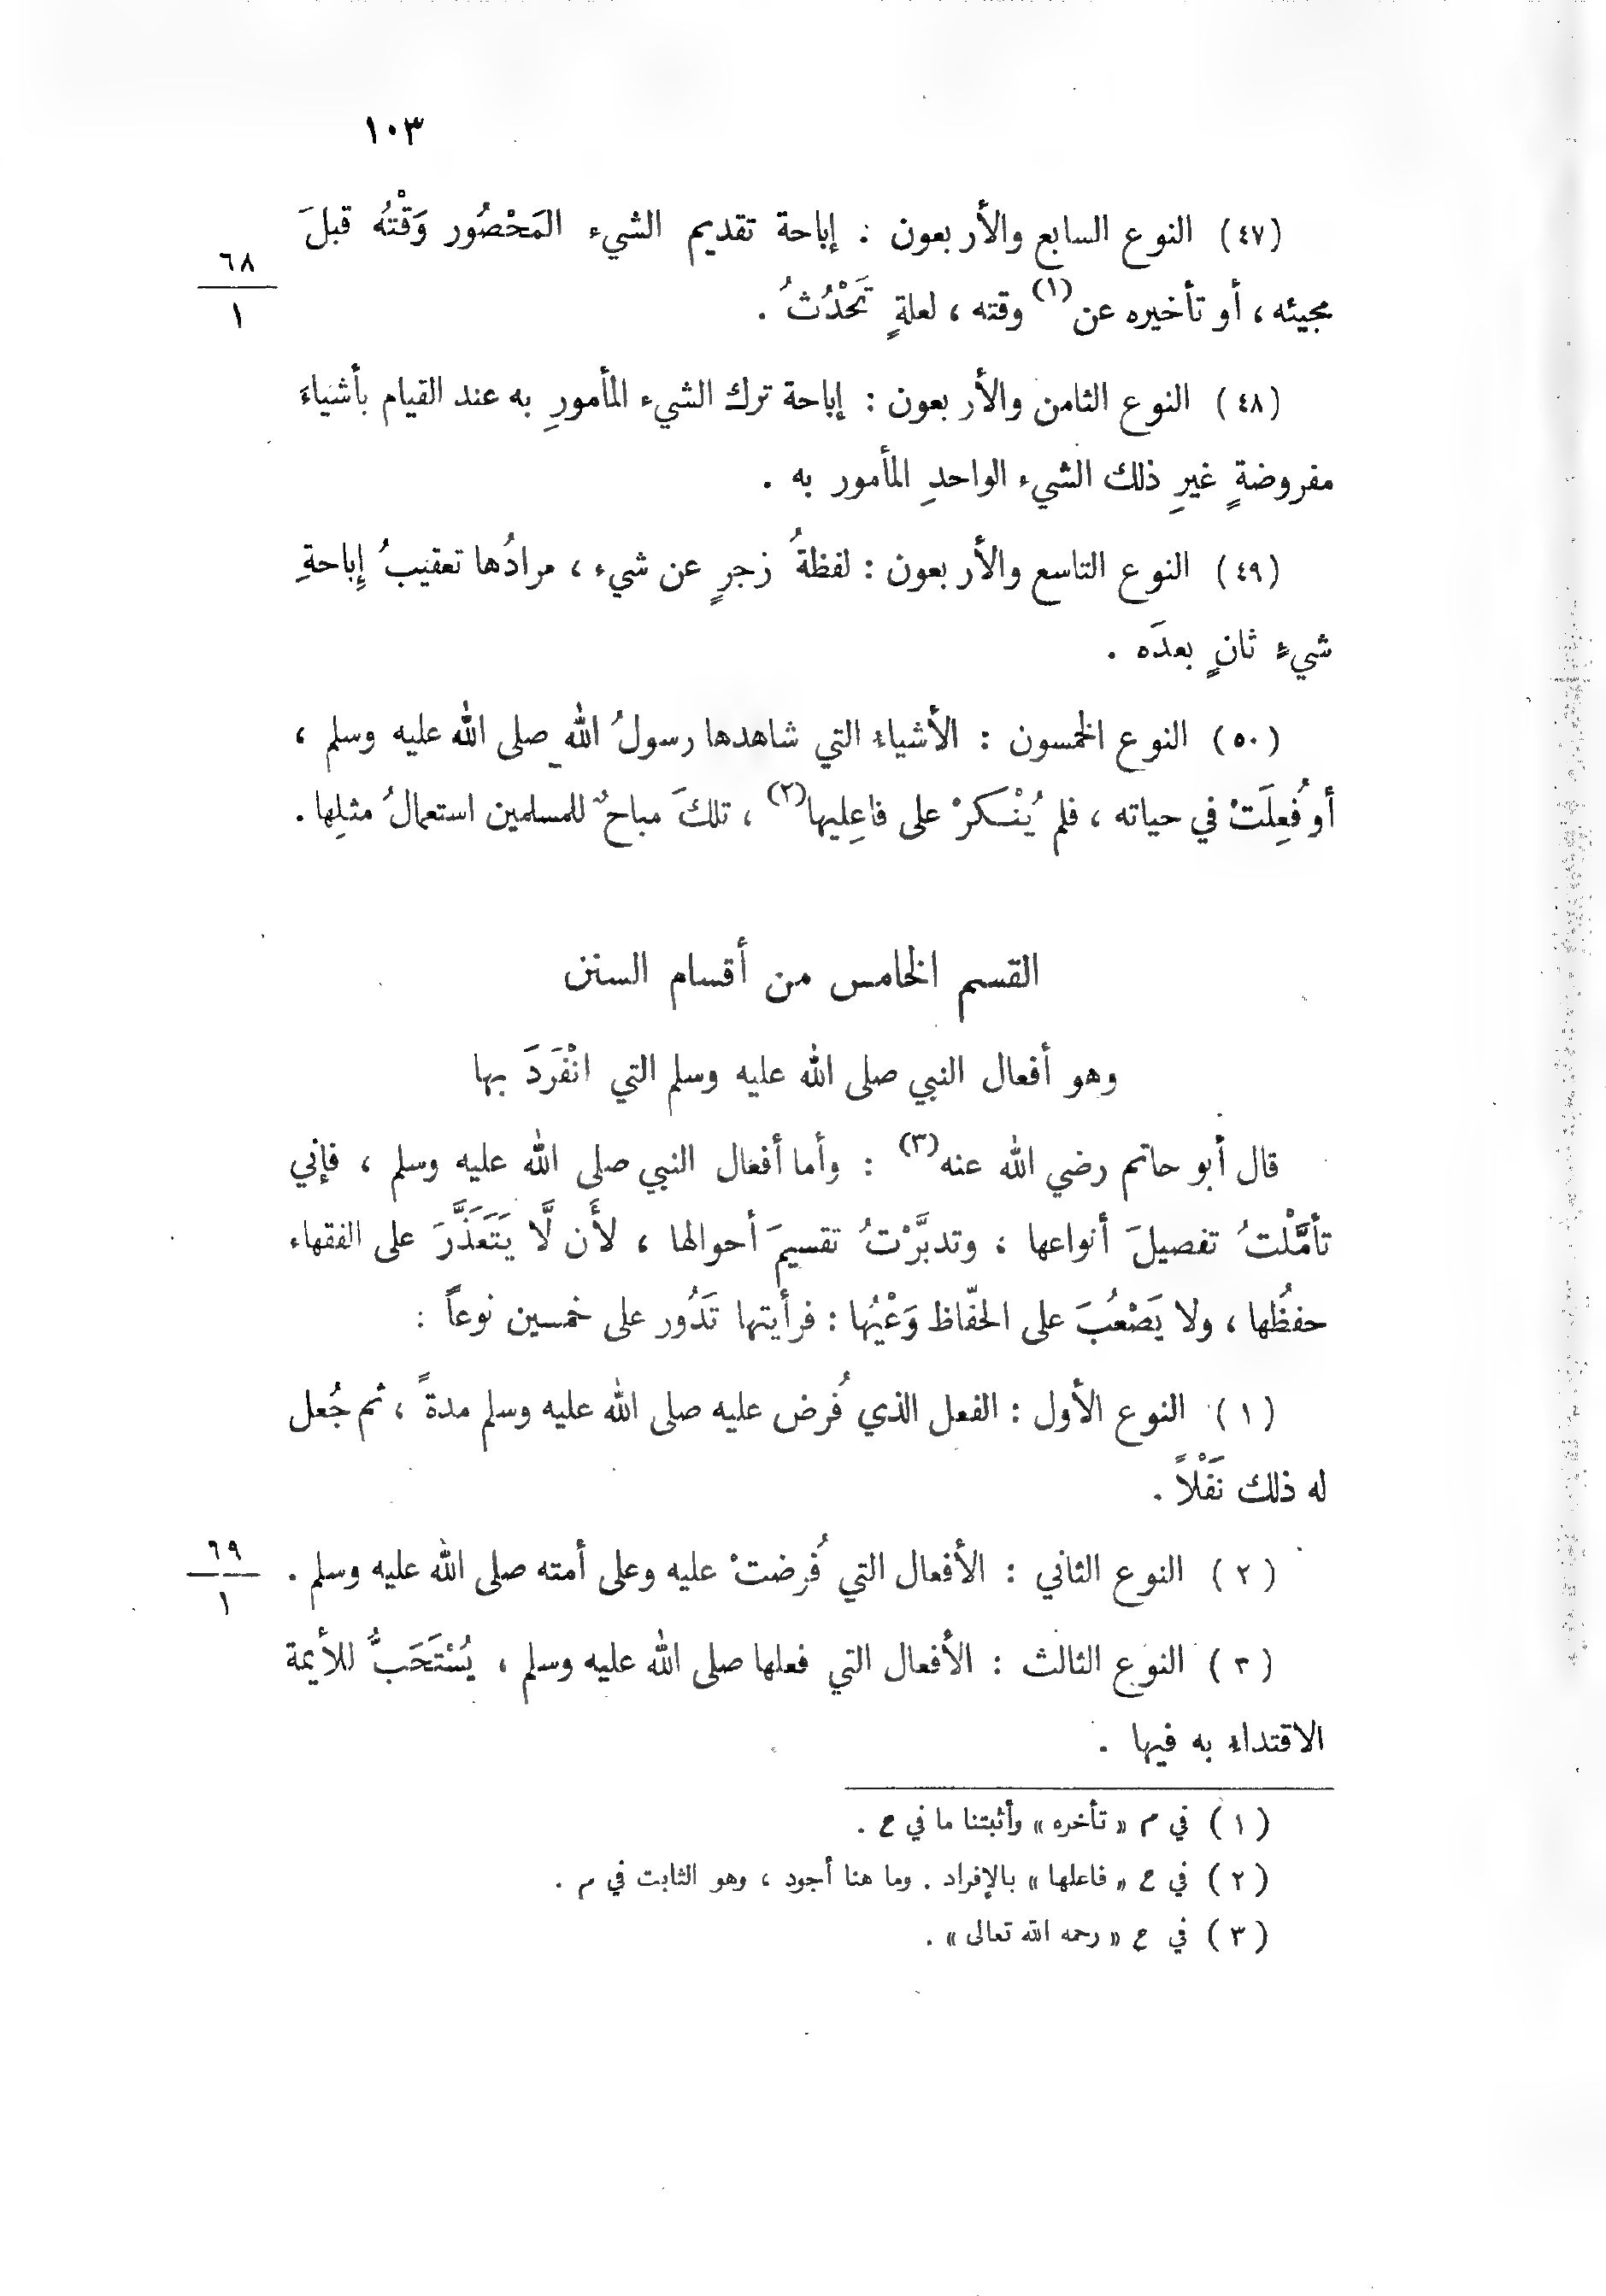 ١٠٣
(٤٧) النوع السابع والأربعون : إباحة تقديم الشيء المَحْصُور وَقْتُه قبلَ
٦٨
١
مجيئه ، أو تأخيره عن(١) وقته ، لعلةٍ تَحْدُثُ .
(٤٨) النوع الثامن والأربعون : إباحة ترك الشيء المأمورِ به عند القيام بأشياءَ
مفروضةٍ غيرِ ذلك الشيء الواحدِ المأمور به .
(٤٩) النوع التاسع والأربعون : لفظةُ زجرٍ عن شيء ، مرادُها تعقيبُ إِباحةِ
شيءٍ ثانٍ بعدَه .
(٥٠) النوع الخمسون : الأشياء التي شاهدها رسولُ اللهِ صلى الله عليه وسلم ،
أو فُعِلَتْ في حياته ، فلم يُنْكرْ على فاعِليها(٢) ، تلكَ مباحٌ للمسلمين استعمالُ مثلِها .
القسم الخامس من أقسام السنن
وهو أفعال النبي صلى الله عليه وسلم التي انْفَرَدَ بها
قال أبو حاتم رضي الله عنه(٣) : وأما أفعال النبي صلى الله عليه وسلم ، فإني
تأمَّلْتُ تفصيلَ أنواعها ، وتدبَّرْتُ تقسيمَ أحوالها ، لأَن لَّا يَتَعَذَّرَ على الفقهاء
حفظُها ، ولا يَصْعُبَ على الحفّاظ وَعْيُها : فرأيتها تَدُور على خمسين نوعاً :
(١) النوع الأول : الفعل الذي فُرض عليه صلى الله عليه وسلم مدةً ، ثم جُعل
له ذلك نَفْلاً .
(٢) النوع الثاني : الأفعال التي فُرضتْ عليه وعلى أمته صلى الله عليه وسلم .
٦٩
١
(٣) النوع الثالث : الأفعال التي فعلها صلى الله عليه وسلم ، يُسْتَحَبُّ للأيمة
الاقتداء به فيها .
(١) في م « تأخره » وأثبتنا ما في ع .
(٢) في ع « فاعلها » بالإفراد . وما هنا أجود ، وهو الثابت في م .
(٣) في ع « رحمه الله تعالى » .